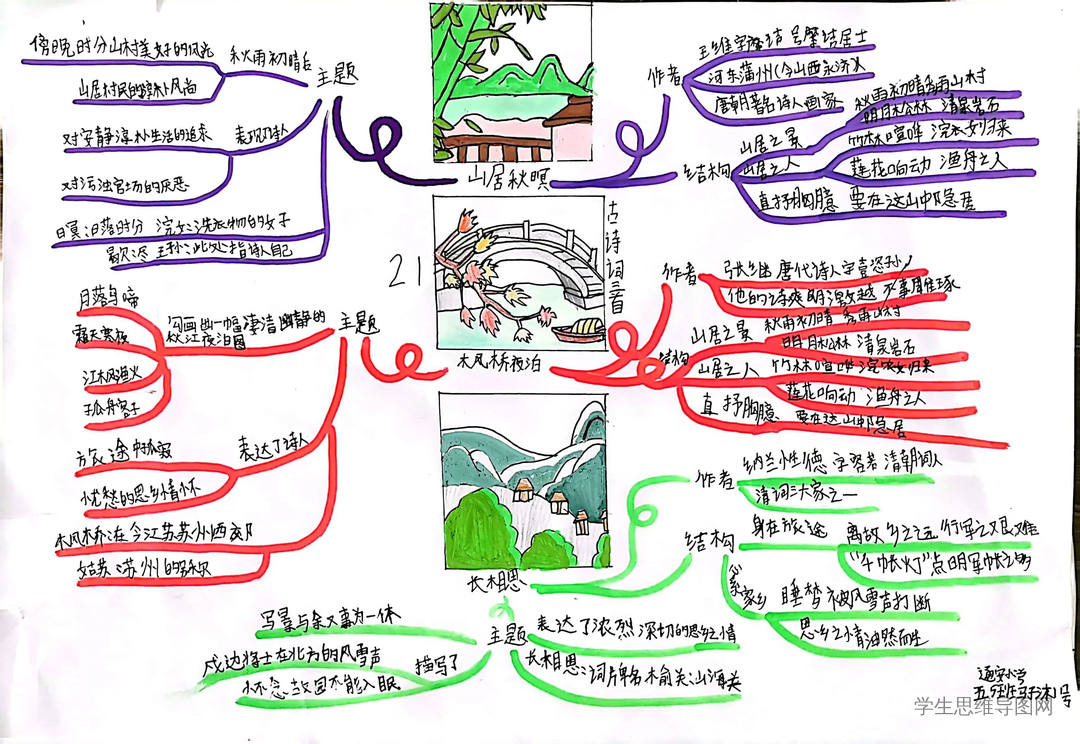 21
古诗词三首
山居秋暝
主题
秋雨初晴后
傍晚时分山村美好的风光
山居村民的淳朴风尚
表现了诗人
对安静淳朴生活的追求
对污浊官场的厌恶
暝:日落时分 浣女:洗衣物的女子
王孙:此处指诗人自己
作者
王维字摩诘 号摩诘居士
河东蒲州(今山西永济)人
唐朝著名诗人画家
结构
山居之景
秋雨初晴 山村
明月松林 清泉岩石
山居之人
竹林喧哗 浣衣女归来
莲花响动 渔舟之人
直抒胸臆 要在这山中隐居
枫桥夜泊
主题
勾画出一幅凄洁幽静的
秋江夜泊图
日落乌啼
霜天寒夜
江枫渔火
孤舟客子
表达了诗人
旅途中孤寂
忧愁的思乡情怀
枫桥:在今江苏苏州西郊
姑苏:苏州的别称
作者
张继 唐代诗人字懿孙
他的诗爽朗激越 不事雕琢
结构
山居之景
秋雨初晴 秀丽山村
明月松林 清泉岩石
山居之人
竹林喧哗 浣衣女归来
莲花响动 渔舟之人
直抒胸臆 要在这山中隐居
长相思
作者
纳兰性德 字容若 清朝词人
清词三大家之一
结构
身在旅途
离故乡之远 行军之艰难
"千帐灯"点明军帐之多
心系家乡
睡梦被风雪声打断
思乡之情油然而生
主题
表达了浓烈深切的思乡之情
长相思:词牌名 榆关:山海关
描写了
写景与叙事为一体
戍边将士在北方的风雪声
怀念故园不能入眠
学生思维导图网